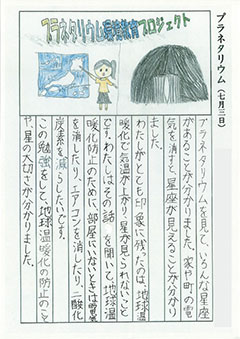 プラネタリウム(七月三日)
プラネタリウム環境教育プロジェクト
プラネタリウムを見て、いろんな星座
があることが分かりました。家や町の電
気を消すと、星座が見えることが分かり
ました。
わたしがとても印象に残ったのは、地球温
暖化で気温が上がり、星が見られないこと
です。わたしはその話を聞いて、地球温
暖化防止のために、部屋にいないときは電気
を消したり、エアコンを消したり、二酸化
炭素を減らしたいです。
この勉強をして、地球温暖化の防止のこと
や、星の大切さが分かりました。